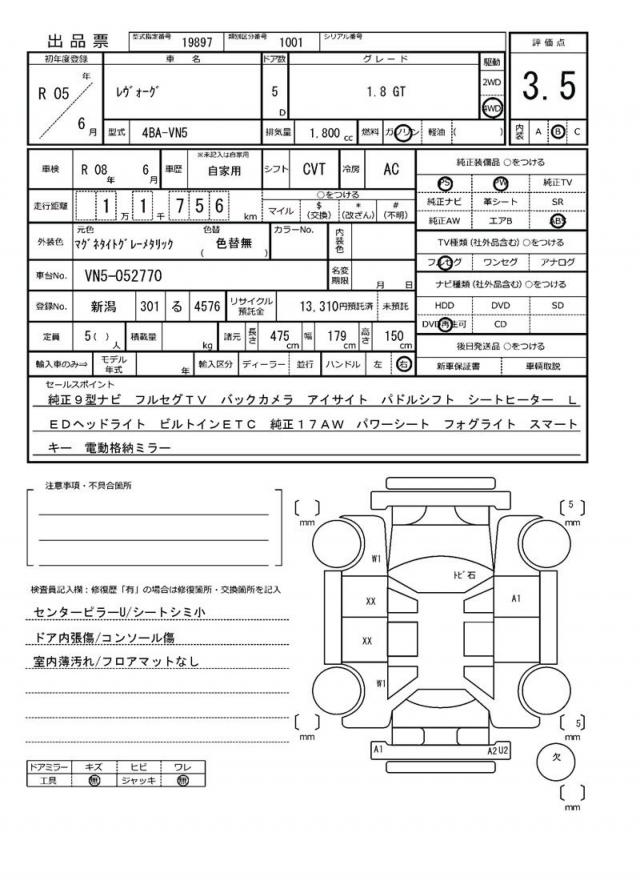 出品票 型式指定番号 19897 類別区分番号 1001 シリアル番号
初年度登録 車名 ドア数 グレード 駆動 評価点
R 05 年 6 月 レヴォーグ 5 D 1.8 GT 2WD 4WD 3.5
型式 4BA-VN5 排気量 1,800 cc 燃料 ガソリン 軽油 ( ) 内装 A B C
車検 R 08 年 6 月 車歴 ※未記入は自家用 自家用 シフト CVT 冷房 AC
純正装備品 ○をつける
PS PW 純正TV
純正ナビ 革シート SR
純正AW エアB ABS
走行距離 1 1 万 1 千 7 5 6 km ○をつける
マイル $ (交換) * (改ざん) # (不明)
TV種類 (社外品含む) ○をつける
フルセグ ワンセグ アナログ
外装色 元色 マグネタイトグレーメタリック 色替 ( 色替無 ) カラーNo. 内装色
ナビ種類 (社外品含む) ○をつける
HDD DVD SD
DVD再生可 CD
車台No. VN5-052770 名変期限 月 日
登録No. 新潟 301 る 4576 リサイクル預託金 13,310円預託済 未預託
定員 5( ) 人 積載量 kg 諸元 長さ 475 cm 幅 179 cm 高さ 150 cm
後日発送品 ○をつける
新車保証書 車輌取説
輸入車のみ⇒ モデル年式 年 輸入区分 ディーラー 並行 ハンドル 左 右
セールスポイント
純正9型ナビ フルセグTV バックカメラ アイサイト パドルシフト シートヒーター L
EDヘッドライト ビルトインETC 純正17AW パワーシート フォグライト スマート
キー 電動格納ミラー
注意事項・不具合箇所
検査員記入欄：修復歴「有」の場合は修復箇所・交換箇所を記入
センターピラーU/シートシミ小
ドア内張傷/コンソール傷
室内薄汚れ/フロアマットなし
ドアミラー キズ ヒビ ワレ
工具 無 ジャッキ 無
[ ] mm
[ 5 ] mm
W1
トビ石
XX
A1
XX
W1
[ ] mm
[ 5 ] mm
A1
A2 U2
欠
[ ] mm